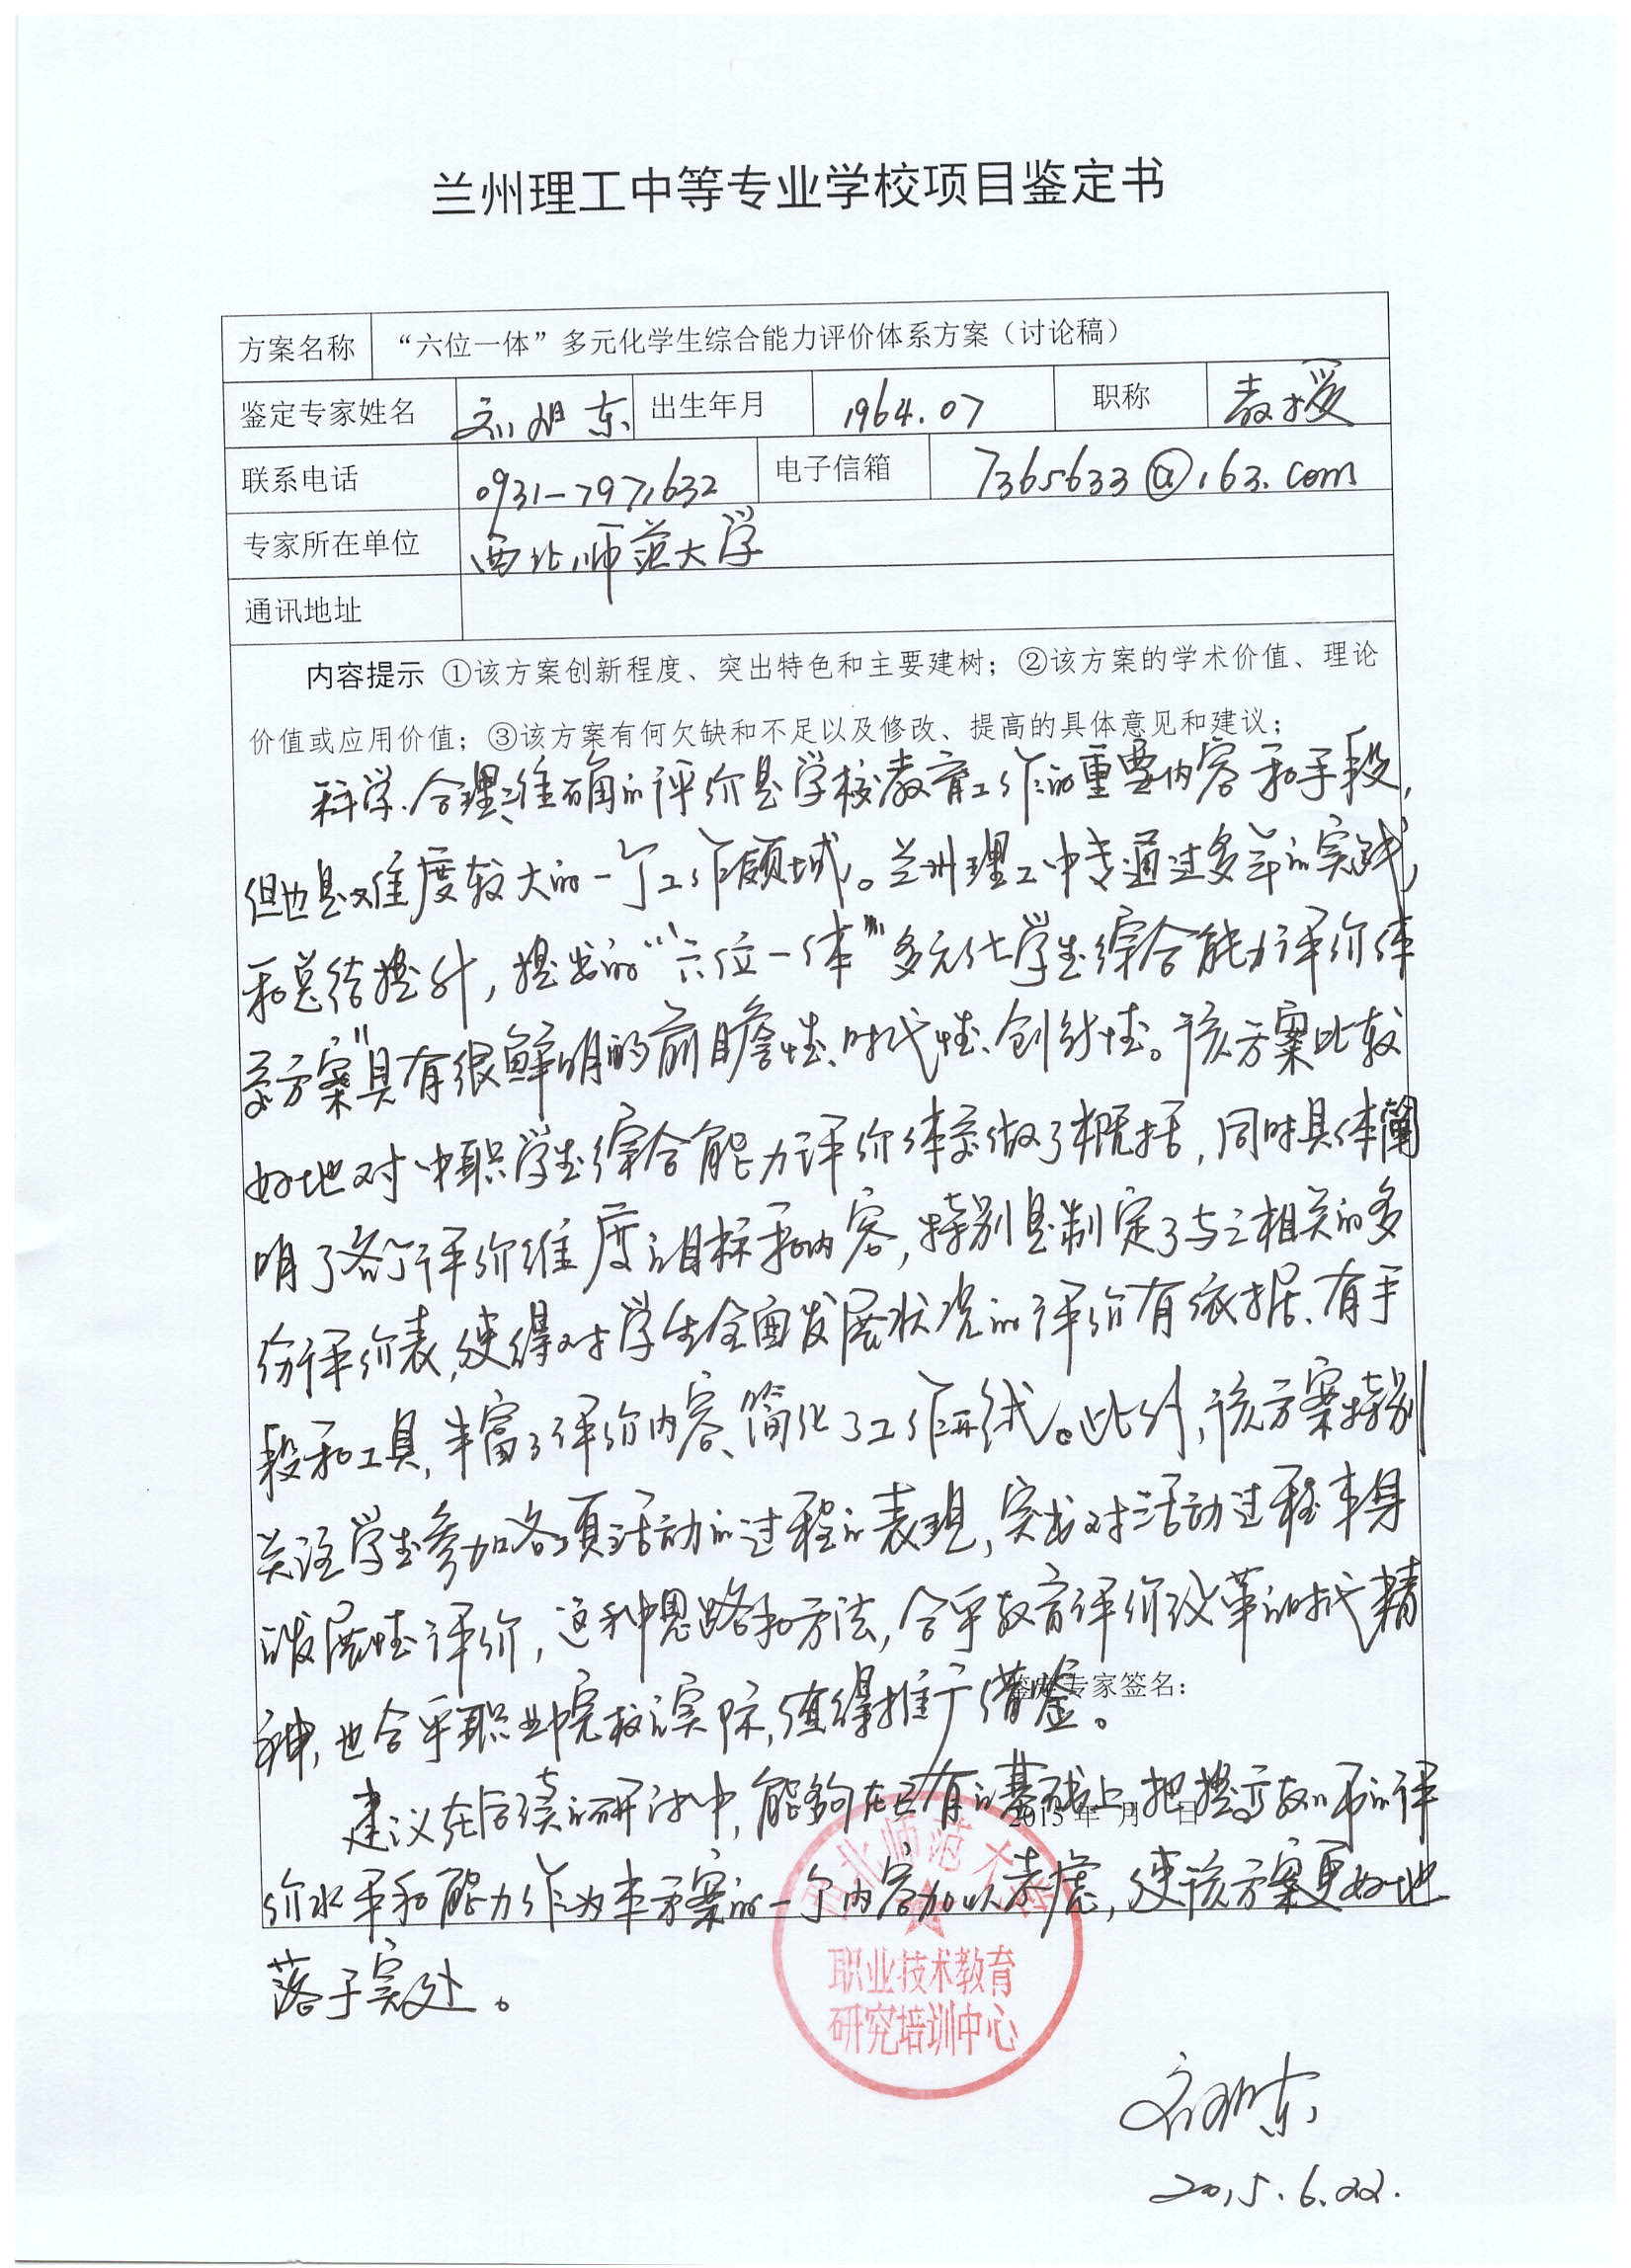 兰州理工中等专业学校项目鉴定书
方案名称 “六位一体”多元化学生综合能力评价体系方案（讨论稿）
鉴定专家姓名 刘旭东 出生年月 1964.07 职称 教授
联系电话 0931-7971632 电子信箱 7365633@163.com
专家所在单位 西北师范大学
通讯地址
内容提示 ①该方案创新程度、突出特色和主要建树；②该方案的学术价值、理论
价值或应用价值；③该方案有何欠缺和不足以及修改、提高的具体意见和建议；
科学、合理、准确的评价是学校教育工作的重要内容和手段，
但也是难度较大的一个工作领域。兰州理工中专通过多年的实践，
和总结提升，提出的“‘六位一体’多元化学生综合能力评价体
系方案”具有很鲜明的前瞻性、时代性、创新性。该方案比较
好地对中职学生综合能力评价体系做了概括，同时具体阐
明了各个评价维度的目标和内容，特别是制定了与之相关的多
份评价表，使得对学生全面发展状况的评价有依据、有手
段和工具，丰富了评价内容、简化了工作。此外，该方案特别
关注学生参加各项活动的过程的表现，突出对活动过程本身
的发展性评价，这种思路和方法，合乎教育评价改革的时代精
神，也合乎职业院校的实际，值得推广借鉴。
鉴定专家签名：
建议在后续的研讨中，能够在已有的基础上把提高教师的评
2015 年 月 日
价水平和能力作为本方案的一个内容加以考虑，使该方案更好地
落于实处。
西北师范大学
职业技术教育
研究培训中心
刘旭东
2015.6.22.